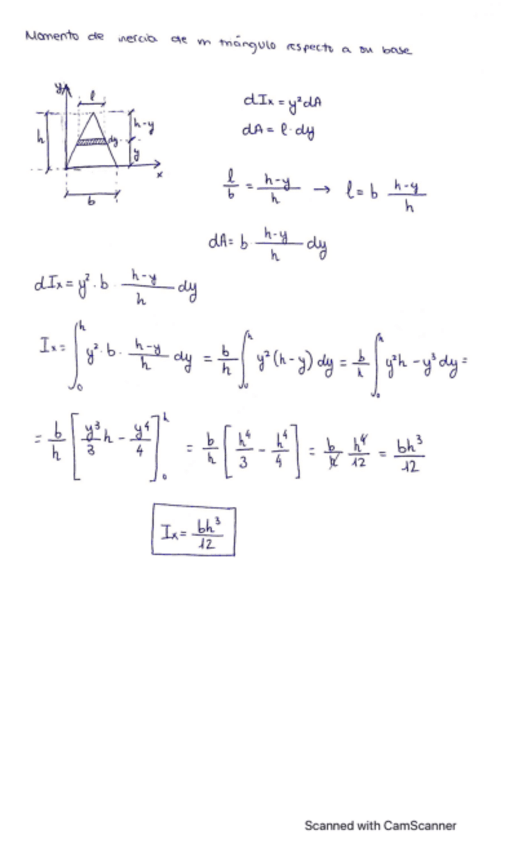 Momento de inercia de un triángulo respecto a su base
y
l
h
h-y
dy
y
x
b
dIx = y²dA
dA = l·dy
l/b = (h-y)/h → l = b (h-y)/h
dA = b (h-y)/h dy
dIx = y²·b·(h-y)/h dy
Ix = ∫₀ʰ y²·b·(h-y)/h dy = b/h ∫₀ʰ y²(h-y) dy = b/h ∫₀ʰ y²h - y³ dy =
= b/h [y³/3 h - y⁴/4]₀ʰ = b/h [h⁴/3 - h⁴/4] = b/h h⁴/12 = bh³/12
Ix = bh³/12
Scanned with CamScanner